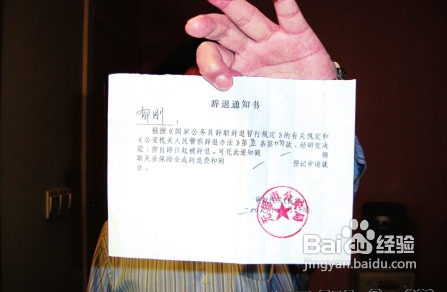 辞退通知书
郁刚：
根据《国家公务员辞职辞退暂行规定》的有关规定和
《公安机关人民警察辞退办法》第五条第 款，经研究决
定，你自即日起被辞退。可凭此通知到 领
取失业保险金或封退费和到 登记申请就
业。
无锡市公安局
Baidu 百度 经验
jingyan.baidu.com